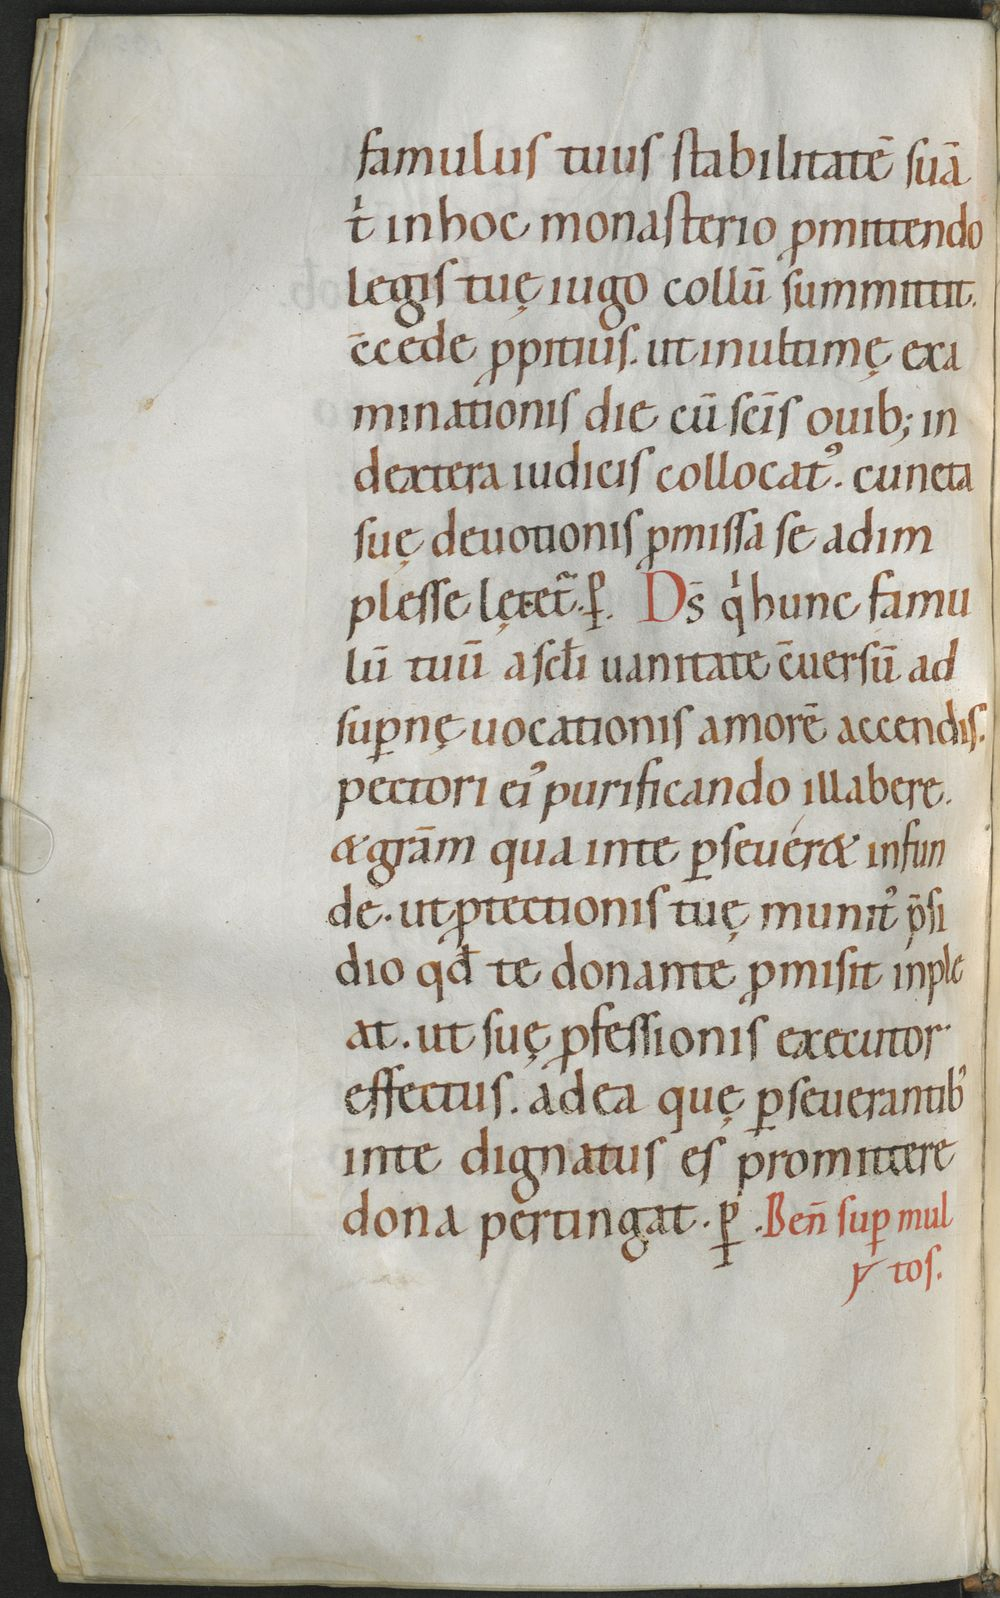 famulus tuus stabilitatē suā
t̓ in hoc monasterio ꝓmittendo
legis tuę iugo collū summittit.
c̄cede ꝓpitius. ut in ultimę exa
minationis die cū sc̄is ouib; in
dextera iudicis collocat᾽. cuncta
suę deuotionis ꝓmissa se adim
plesse lętet᾽. ꝑ. Ds̄ qͥ hunc famu
lū tuū a scl̄i uanitate c̄uersū ad
suꝑnę uocationis amorē accendis.
pectori ei᾽ purificando illabere.
& gr̄am qua in te ꝑseuer& infun
de. ut ꝓtectionis tuę munit᾽ p̄si
dio qd̄ te donante ꝓmisit inple
at. ut suę ꝓfessionis executor
effectus. ad ea quę ꝑseuerantib᾽
in te dignatus es promittere
dona pertingat. ꝑ. Ben̄ suꝑ mul
tos.